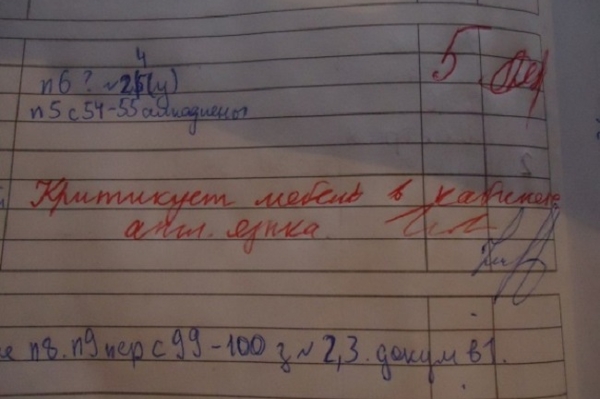 п6 ? №24(у)
п5 с 54-55
5
Критикует мебель в кабинете
англ. языка
п8. п9 пер с 99-100 з №2,3. докум в 1.